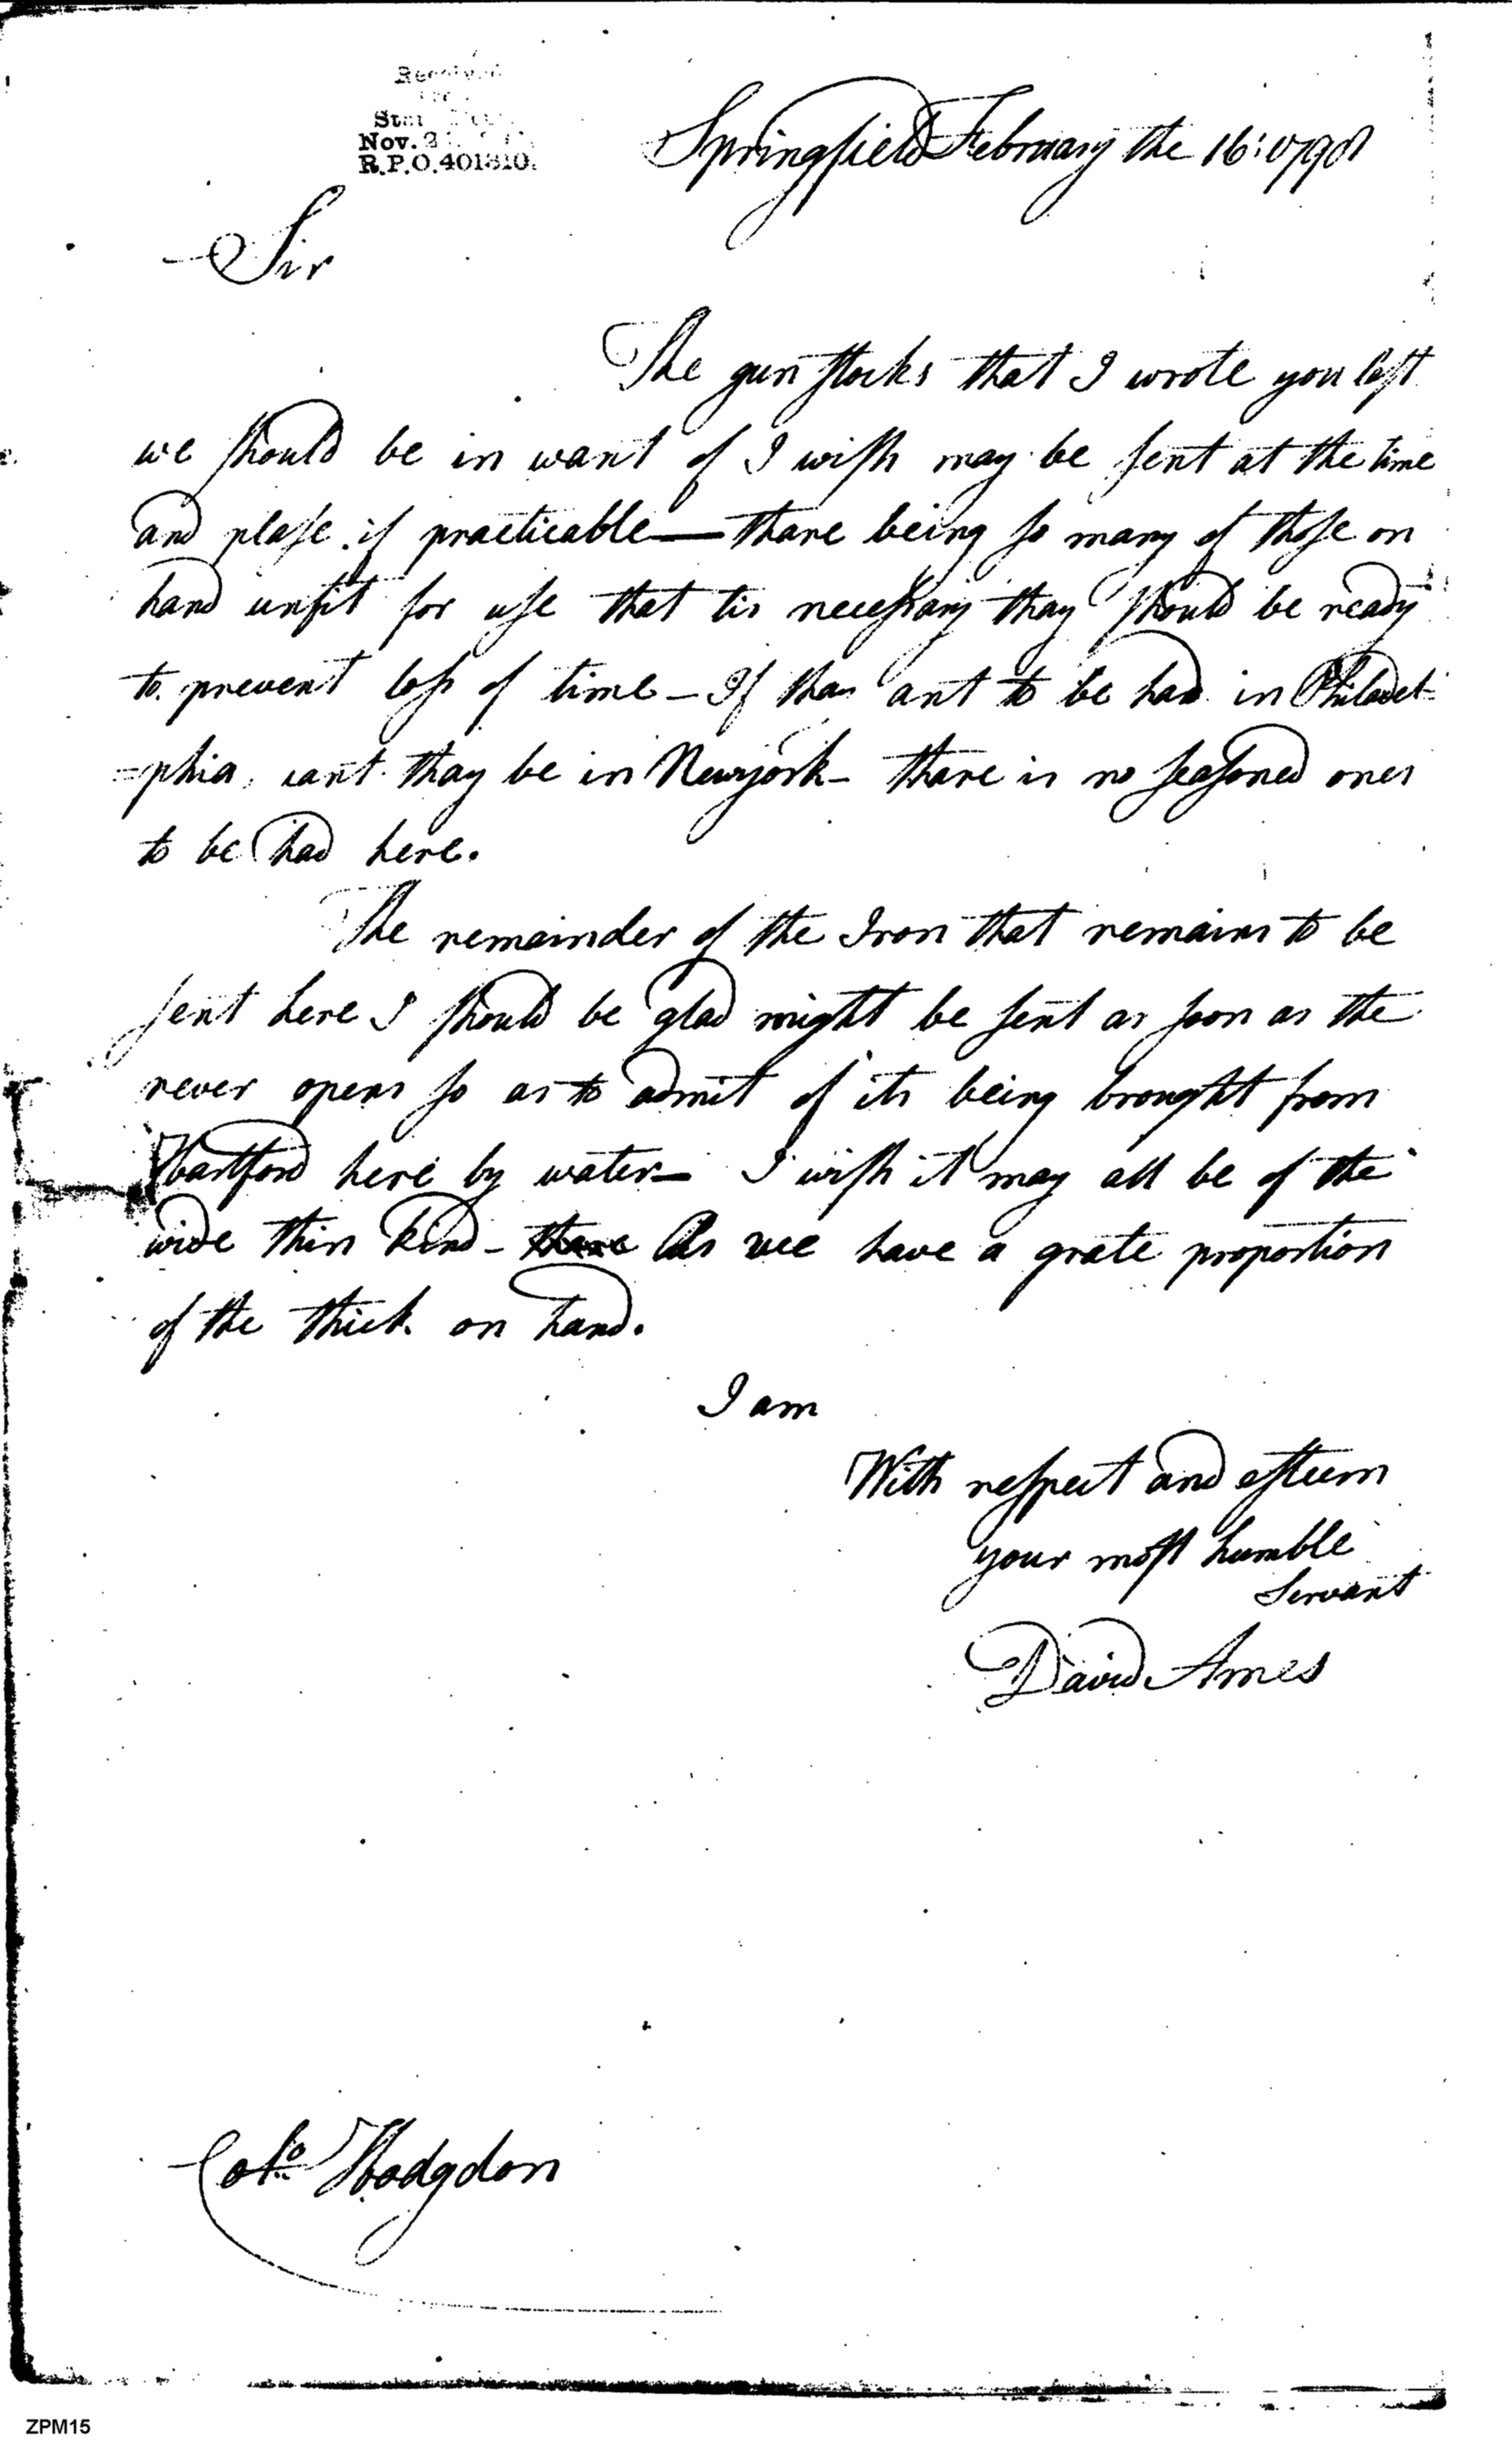 Received
Nov. 2
R.P.O. 401310.
Springfield February the 16: 1798
Sir
The gun stocks that I wrote you last
we should be in want of I wish may be sent at the time
and plase if practicable — thare being so many of those on
hand unfit for use that tis necessary thay should be ready
to prevent loss of time – If thay ant to be had in Philadel-
=phia, cant thay be in Newyork – thare is no seasoned ones
to be had here.
The remainder of the Iron that remains to be
sent here I should be glad might be sent as soon as the
rever opens so as to admit of its being brought from
Hartford here by water – I wish it may all be of the
wide thin kind – thare As wee have a grate proportion
of the thick on hand.
I am
With respect and esteem
your most humble
Servant
David Ames
Colo Hodgdon
ZPM15